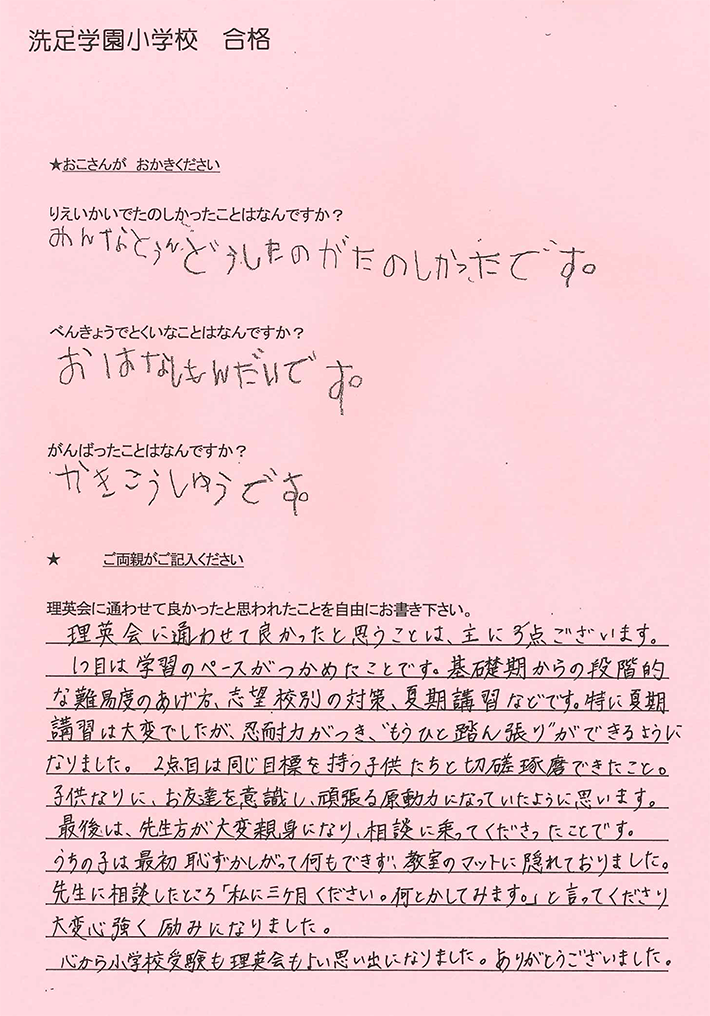 洗足学園小学校　合格
★おこさんが　おかきください
りえいかいでたのしかったことはなんですか？
みんなとうんどうしたのがたのしかったです。
べんきょうでとくいなことはなんですか？
おはなしもんだいです。
がんばったことはなんですか？
かきこうしゅうです。
★　ご両親がご記入ください
理英会に通わせて良かったと思われたことを自由にお書き下さい。
理英会に通わせて良かったと思うことは、主に3点ございます。
1つ目は学習のペースがつかめたことです。基礎期からの段階的
な難易度のあげ方、志望校別の対策、夏期講習などです。特に夏期
講習は大変でしたが、忍耐力がつき、"もうひと踏ん張り"ができるように
なりました。2点目は同じ目標を持つ子供たちと切磋琢磨できたこと。
子供なりに、お友達を意識し、頑張る原動力になっていたように思います。
最後は、先生方が大変親身になり、相談に乗ってくださったことです。
うちの子は最初恥ずかしがって何もできず、教室のマットに隠れておりました。
先生に相談したところ「私に三ヶ月ください。何とかしてみます。」と言ってくださり
大変心強く励みになりました。
心から小学校受験も理英会もよい思い出になりました。ありがとうございました。